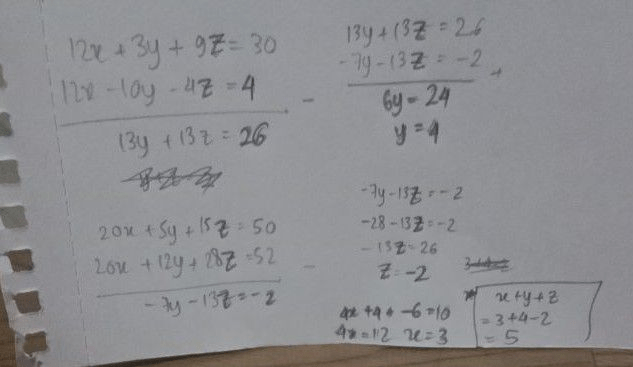 12x + 3y + 9z = 30
12x - 10y - 4z = 4
-
13y + 13z = 26
20x + 5y + 15z = 50
20x + 12y + 28z = 52
-
-7y - 13z = -2
13y + 13z = 26
-7y - 13z = -2
+
6y = 24
y = 4
-7y - 13z = -2
-28 - 13z = -2
-13z = 26
z = -2
4x + 4 + -6 = 10
4x = 12 x = 3
x + y + z
= 3 + 4 - 2
= 5